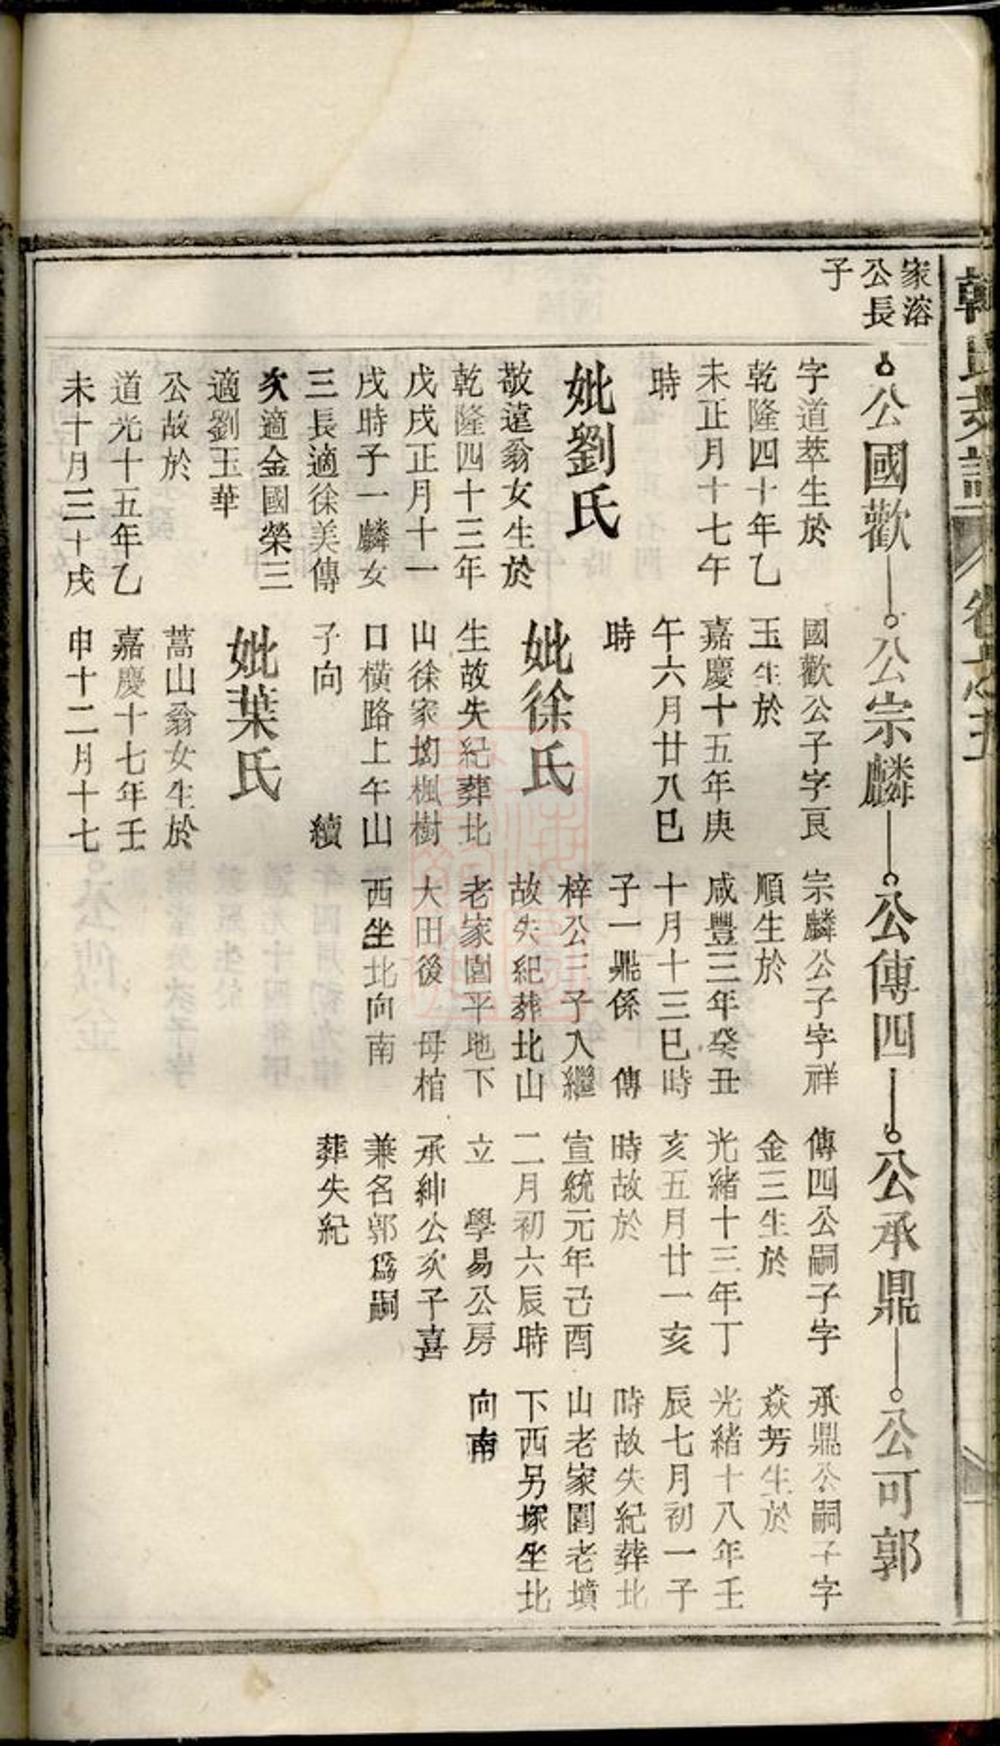 家溶
公長
子
公國歡
字道萃生於
乾隆四十年乙
未正月十七午
時
妣劉氏
敬遠翁女生於
乾隆四十三年
戊戌正月十一
戌時子一麟女
三長適徐美傳
次適金國榮三
適劉玉華
公故於
道光十五年乙
未十月三十戌
公宗麟
國歡公子字良
玉生於
嘉慶十五年庚
午六月廿八巳
時
妣徐氏
生故失紀葬北
山徐家坳楓樹
口橫路上午山
子向 續
妣葉氏
蒿山翁女生於
嘉慶十七年壬
申十二月十七
公傳四
宗麟公子字祥
順生於
咸豐三年癸丑
十月十三巳時
子一鼎係 傳
梓公三子入繼
故失紀葬北山
老家園平地下
大田後 母棺
西坐北向南
公承鼎
傳四公嗣子字
金三生於
光緒十三年丁
亥五月廿一亥
時故於
宣統元年己酉
二月初六辰時
立 學易公房
承紳公次子喜
兼名郭爲嗣
葬失紀
公可郭
承鼎公嗣子字
焱芳生於
光緒十八年壬
辰七月初一子
時故失紀葬北
山老家園老墳
下西另塚坐北
向南